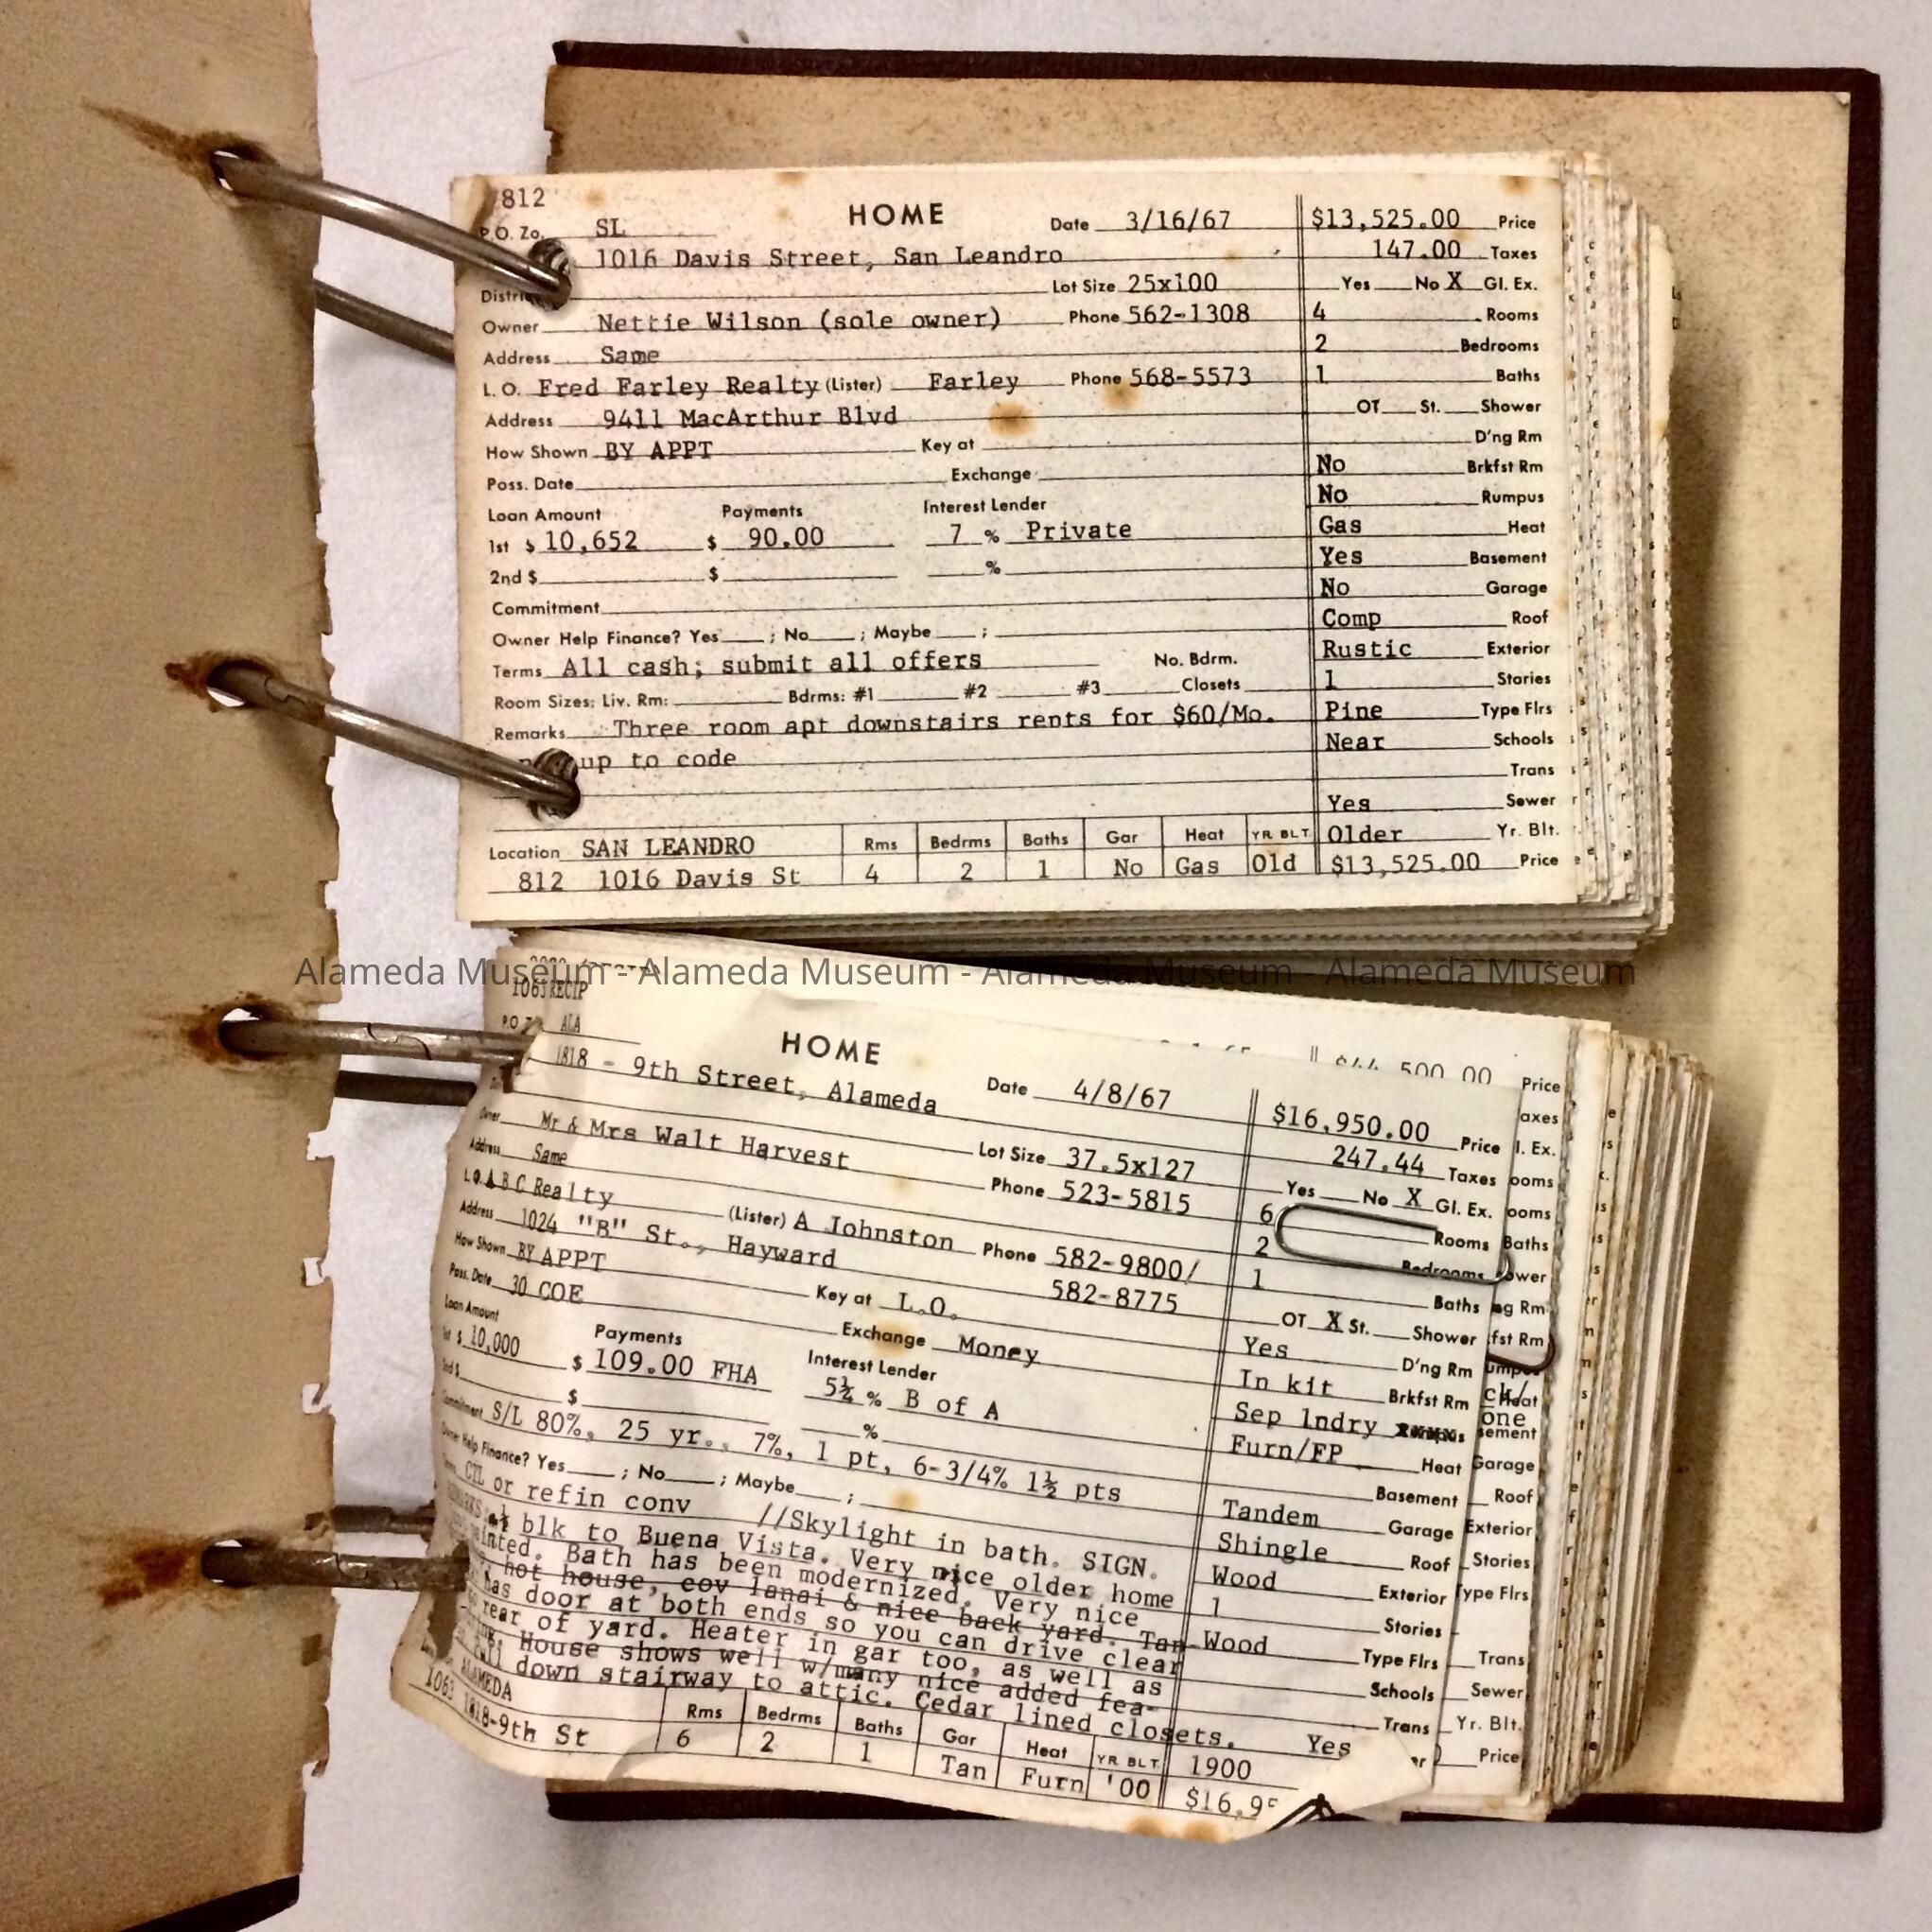 812
HOME
P.O. Zo. SL Date 3/16/67 $13,525.00 Price
1016 Davis Street, San Leandro 147.00 Taxes
Lot Size 25x100 Yes No X Gl. Ex.
Owner Nettie Wilson (sole owner) Phone 562-1308 4 Rooms
Address Same 2 Bedrooms
L.O. Fred Farley Realty (Lister) Farley Phone 568-5573 1 Baths
Address 9411 MacArthur Blvd OT St. Shower
How Shown BY APPT Key at D'ng Rm
Poss. Date Exchange No Brkfst Rm
Loan Amount Payments Interest Lender No Rumpus
1st $ 10,652 $ 90.00 7 % Private Gas Heat
2nd $ $ % Yes Basement
Commitment No Garage
Owner Help Finance? Yes ; No ; Maybe ; Comp Roof
Terms All cash; submit all offers No. Bdrm. Rustic Exterior
Room Sizes: Liv. Rm: Bdrms: #1 #2 #3 Closets 1 Stories
Remarks Three room apt downstairs rents for $60/Mo. Pine Type Flrs
up to code Near Schools
Trans
Yes Sewer
Location SAN LEANDRO Rms Bedrms Baths Gar Heat YR. BLT. Older Yr. Blt.
812 1016 Davis St 4 2 1 No Gas Old $13,525.00 Price
Alameda Museum - Alameda Museum - Alameda Museum - Alameda Museum
1063 RECIP
ALA
HOME
500.00 Price
1818 - 9th Street, Alameda Date 4/8/67 $16,950.00 Price
Lot Size 37.5x127 247.44 Taxes
Owner Mr & Mrs Walt Harvest Phone 523-5815 Yes No X Gl. Ex.
Address Same 6 Rooms
L.O. A B C Realty (Lister) A Johnston Phone 582-9800/ 2 Bedrooms
Address 1024 "B" St., Hayward 582-8775 1 Baths
How Shown BY APPT Key at L.O. OT X St. Shower
Poss. Date 30 COE Exchange Money Yes D'ng Rm
Loan Amount Payments Interest Lender In kit Brkfst Rm
1st $ 10,000 $ 109.00 FHA 5¼ % B of A Sep lndry
2nd $ $ % Furn/FP Heat
Commitment S/L 80%, 25 yr., 7%, 1 pt, 6-3/4% 1½ pts Basement
Owner Help Finance? Yes ; No ; Maybe ; Tandem Garage
CTL or refin conv //Skylight in bath. SIGN. Shingle Roof
REMARKS: ½ blk to Buena Vista. Very nice older home Wood Exterior
painted. Bath has been modernized. Very nice 1 Stories
hot house, cov lanai & nice back yard. Tan- Wood Type Flrs
has door at both ends so you can drive clear Schools
rear of yard. Heater in gar too, as well as Trans
House shows well w/many nice added fea-
down stairway to attic. Cedar lined closets. Yes
ALAMEDA Rms Bedrms Baths Gar Heat YR. BLT. 1900
1063 1818-9th St 6 2 1 Tan Furn '00 $16,95
Garage
Roof
Exterior
Stories
Type Flrs
Trans
Sewer
Yr. Blt.
Price